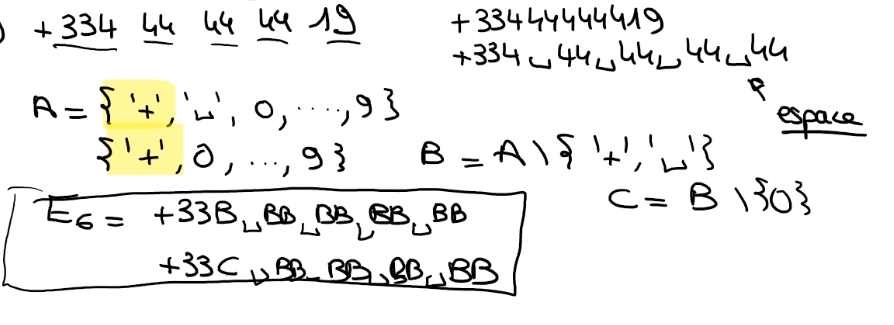 +334 44 44 44 19
+33444444419
+334␣44␣44␣44␣44
espace
A = {'+', '␣', 0, ....., 9}
{'+', 0, ..., 9}
B = A \ {'+', '␣'}
C = B \ {0}
E6 = +33B␣BB␣BB␣BB␣BB
+33C␣BB␣BB␣BB␣BB